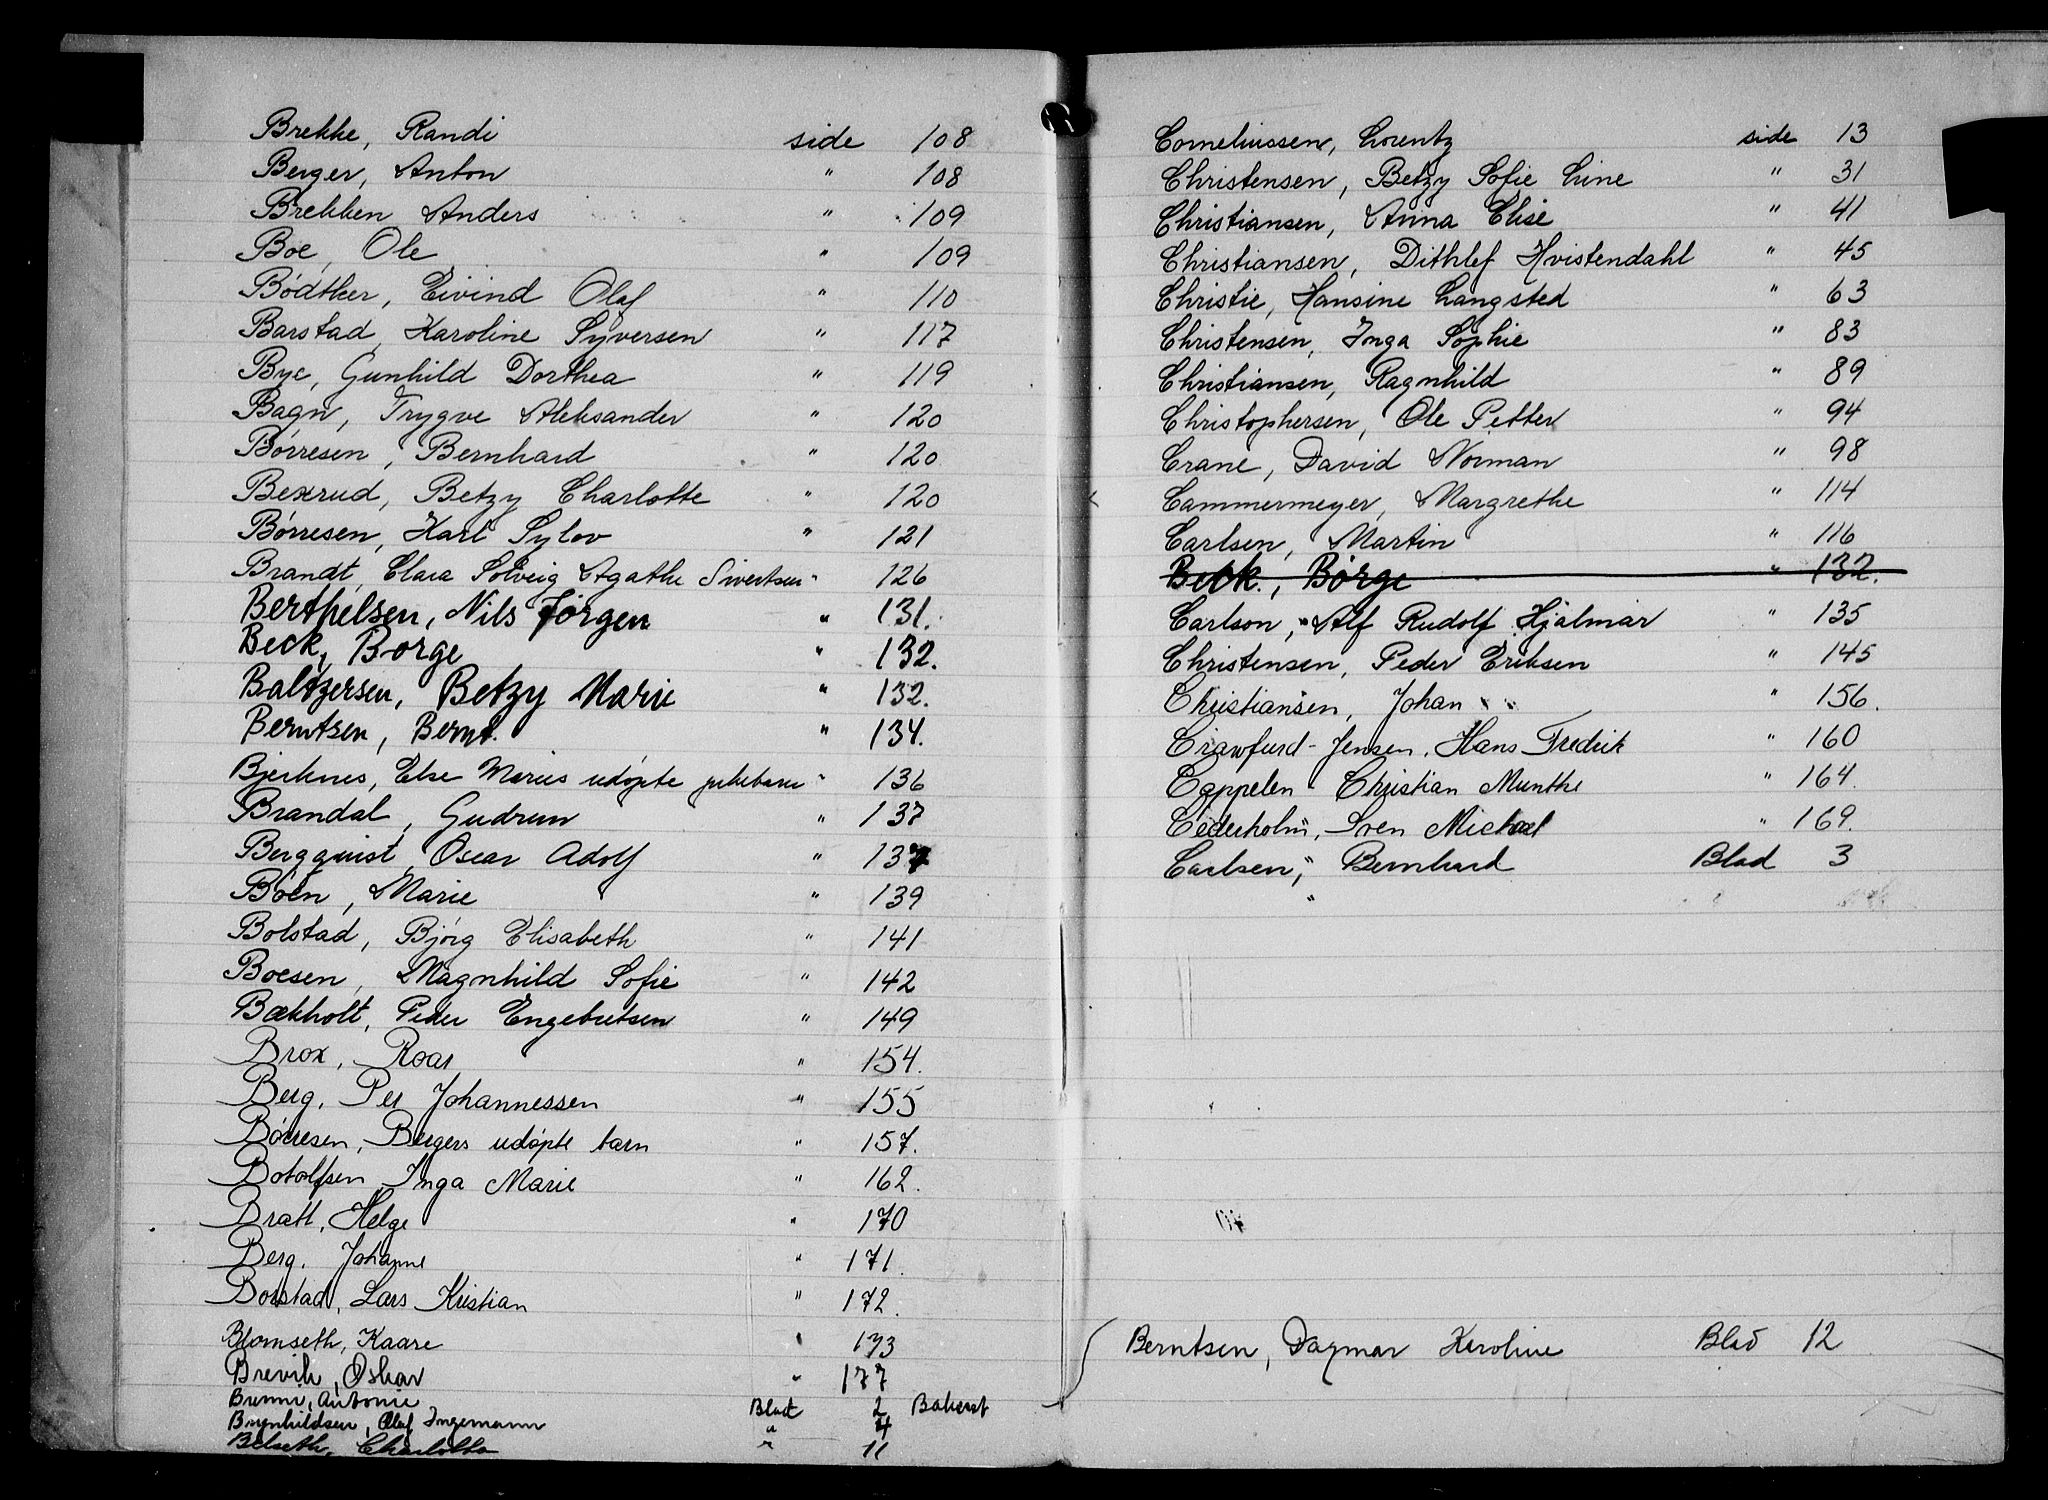 Brekke, Randi side 108
Berger, Anton " 108
Brekken Anders " 109
Boe, Ole " 109
Bødtker, Eivind Olaf " 110
Barstad, Karoline Syversen " 117
Bye, Gunhild Dorthea " 119
Bagn, Trygve Aleksander " 120
Børresen, Bernhard " 120
Bexrud, Betzy Charlotte " 120
Børresen, Karl Sylov " 121
Brandt, Clara Solveig Agathe Sivertsen " 126
Berthelsen, Nils Jørgen " 131.
Beck, Børge " 132.
Baltzersen, Betzy Marie " 132.
Berntsen, Bernt. " 134.
Bjerknes, Else Maries udøpte pikebarn " 136
Brandal, Gudrun " 137
Bergquist, Oscar Adolf " 137
Bøen, Marie " 139
Bolstad, Bjørg Elisabeth " 141
Boesen, Magnhild Sofie " 142
Bækholt, Peder Engebretsen " 149
Brox, Roar " 154.
Berg, Per Johannessen " 155
Børresen, Bergers udøpte barn " 157.
Botolfsen Inga Marie " 162.
Bratt, Helge " 170
Berg, Johanne " 171.
Bolstad, Lars Kristian " 172.
Blomseth, Kaare " 173
Brevik, Oskar " 177
Brunni, Antonie Blad 2 Bakerst
Brynhildsen, Olaf Ingemann " 4
Belseth, Charlotte " 11
Corneliussen, Lorentz side 13
Christensen, Betzy Sofie Line " 31
Christiansen, Anna Elise " 41
Christiansen, Dithlef Hvistendahl " 45
Christie, Hansine Langsted " 63
Christensen, Inga Sophie " 83
Christiansen, Ragnhild " 89
Christophersen, Ole Petter " 94
Crane, David Norman " 98
Cammermeyer, Margrethe " 114
Carlsen, Martin " 116
Beck, Børge " 132.
Carlson, Alf Rudolf Hjalmar " 135
Christensen, Peder Eriksen " 145
Christiansen, Johan " 156.
Crawfurd-Jensen, Hans Fredrik " 160
Cappelen Christian Munthe " 164.
Cederholm, Sven Michael " 169.
Carlsen, Bernhard Blad 3
Berntsen, Dagmar Karoline Blad 12